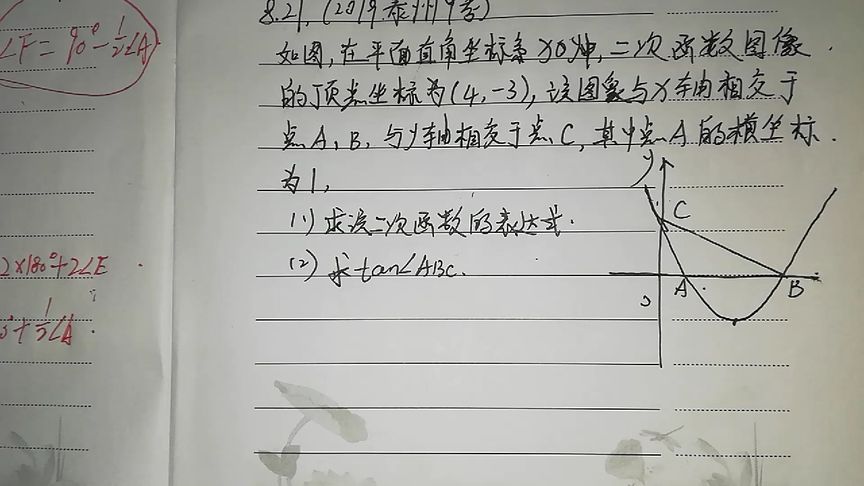 ∠F=90°-1/2∠A
2×180°+2∠E
+1/2∠A.
8.21.(2019泰州中考)
如图,在平面直角坐标系xoy中,二次函数图像
的顶点坐标为(4,-3),该图象与x轴相交于
点A、B,与y轴相交于点C,其中点A的横坐标
为1,
(1)求该二次函数的表达式.
(2)求tan∠ABC.
y
C
A
B